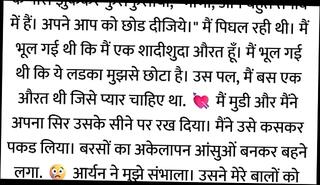 में हैं। अपने आप को छोड दीजिये।" मैं पिघल रही थी। मैं
भूल गई थी कि मैं एक शादीशुदा औरत हूँ। मैं भूल गई
थी कि ये लडका मुझसे छोटा है। उस पल, मैं बस एक
औरत थी जिसे प्यार चाहिए था. 💘 मैं मुडी और मैंने
अपना सिर उसके सीने पर रख दिया। मैंने उसे कसकर
पकड लिया। बरसों का अकेलापन आंसुओं बनकर बहने
लगा. 😳 आर्यन ने मुझे संभाला। उसने मेरे बालों को